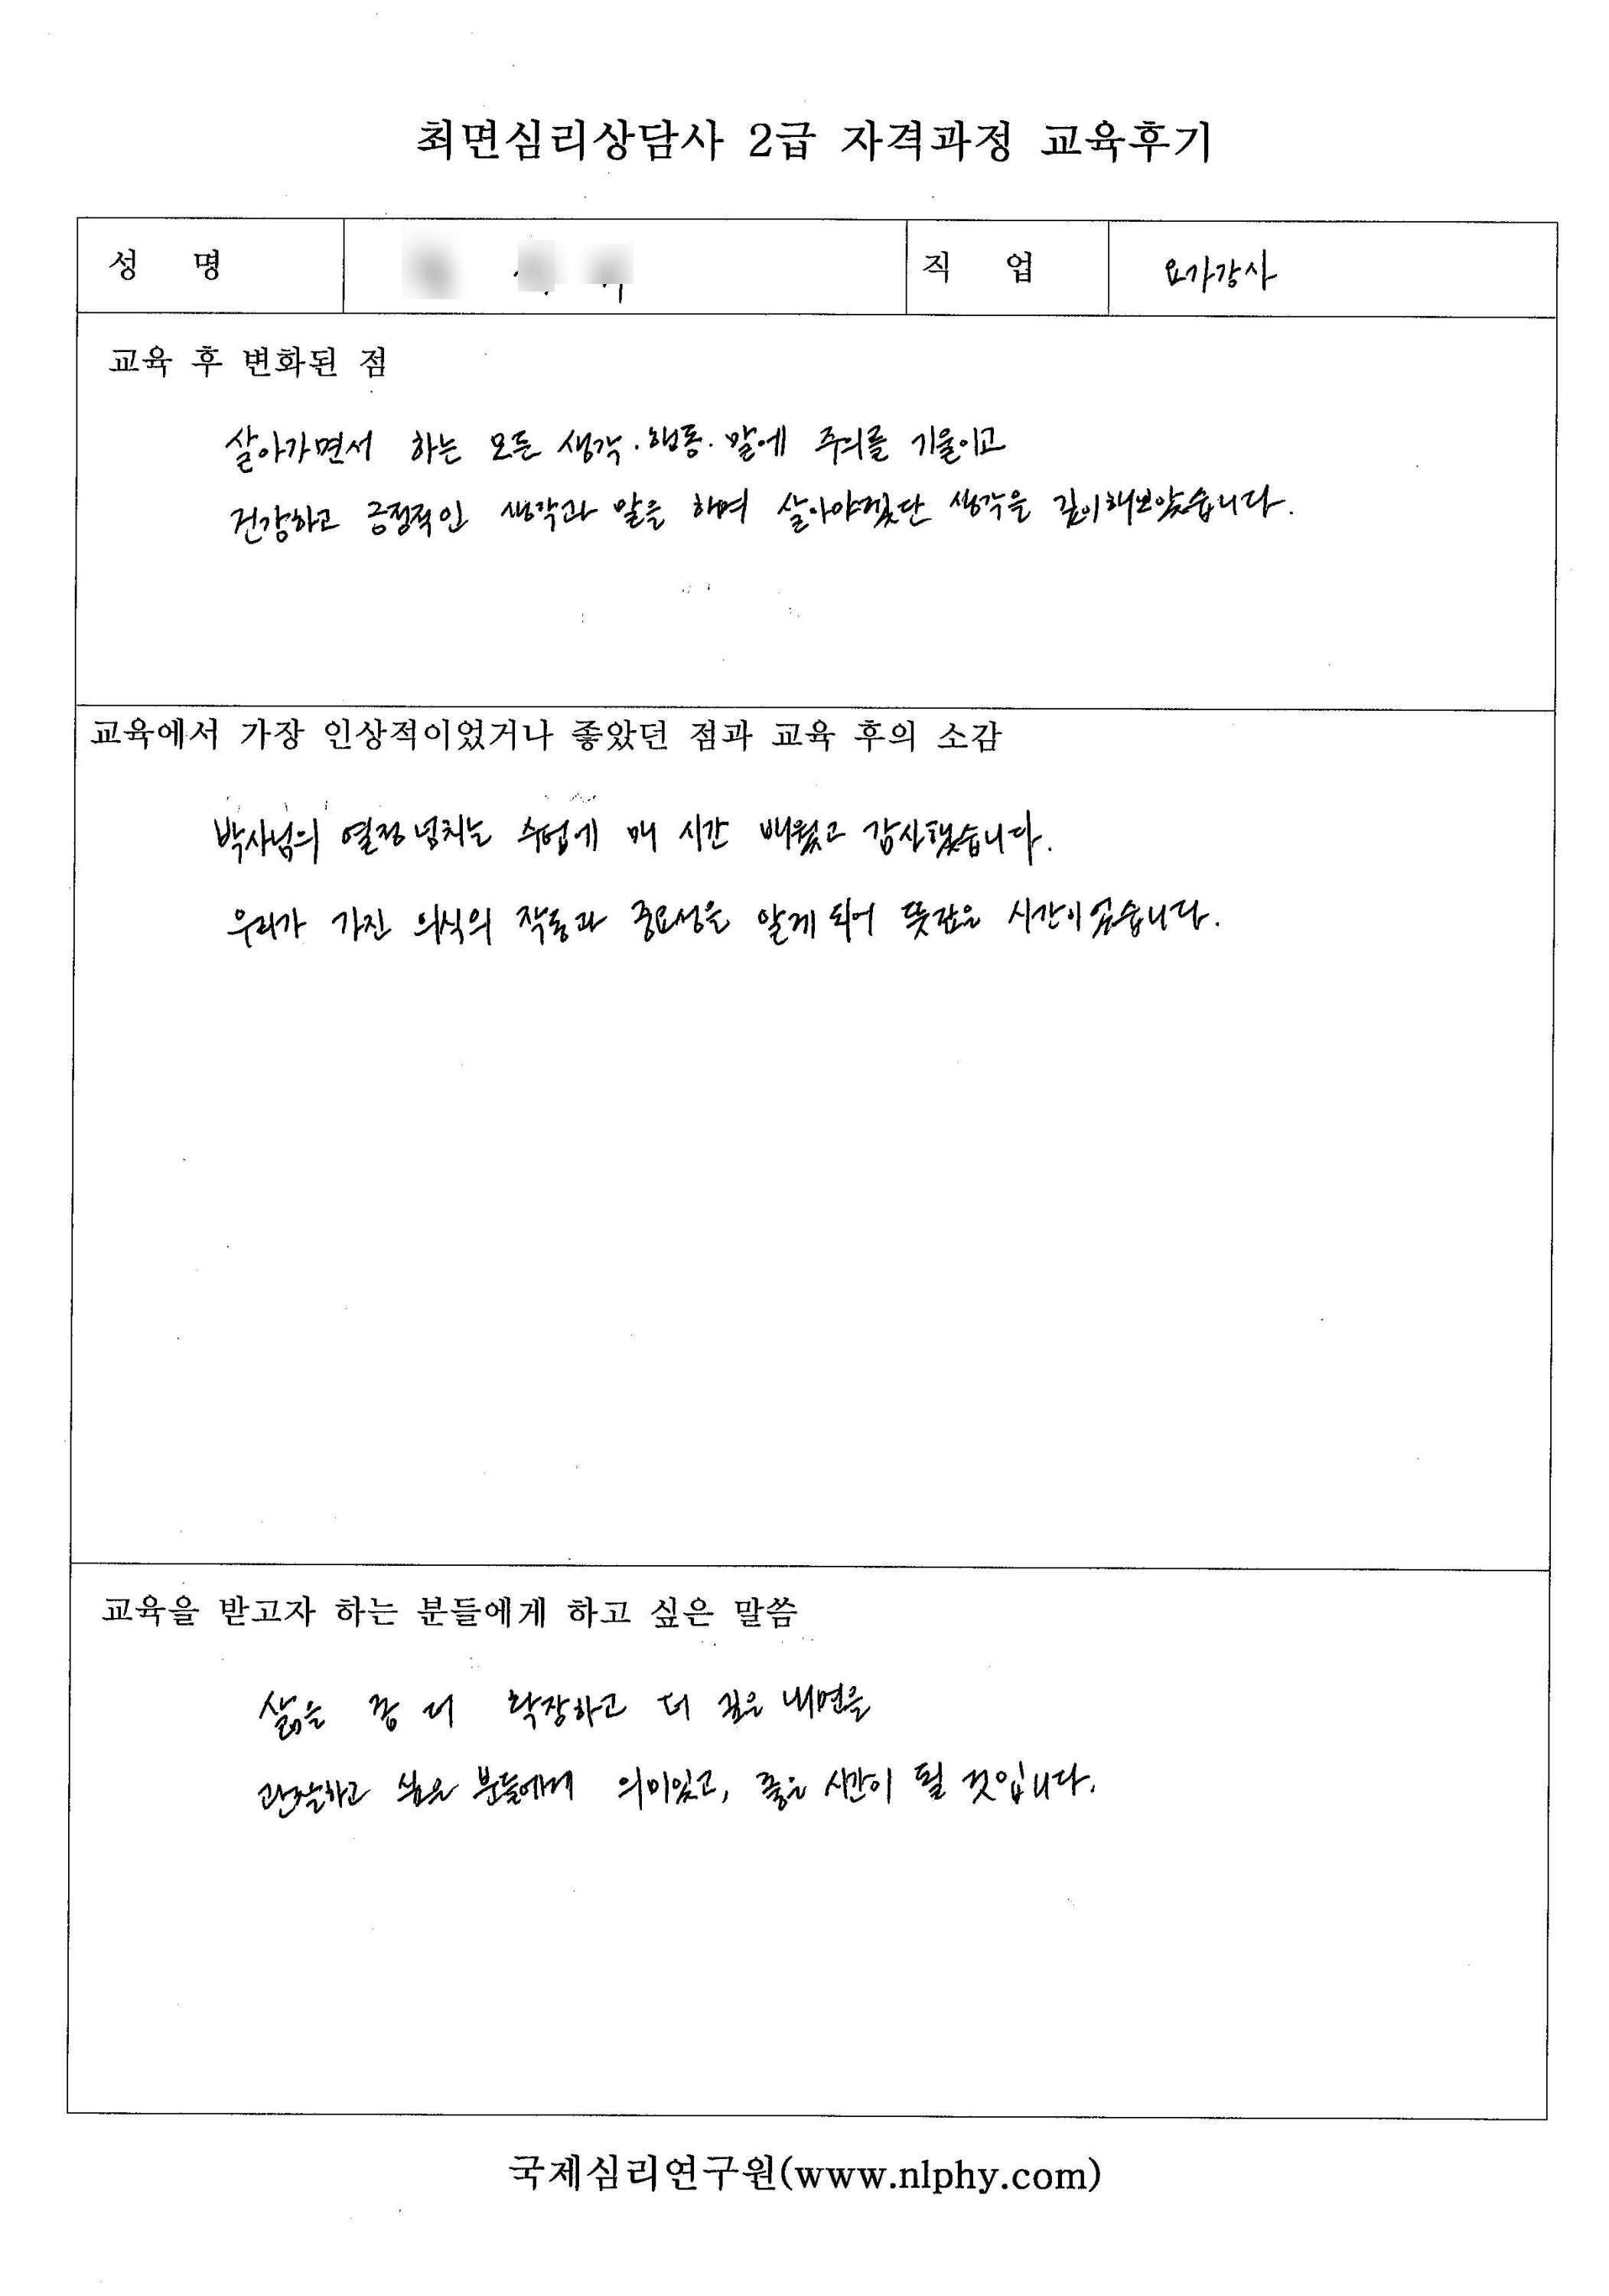 최면심리상담사 2급 자격과정 교육후기
성 명
직 업 요가강사
교육 후 변화된 점
살아가면서 하는 모든 생각·행동·말에 주의를 기울이고
건강하고 긍정적인 생각과 말을 하며 살아야겠단 생각을 깊이해보았습니다.
교육에서 가장 인상적이었거나 좋았던 점과 교육 후의 소감
박사님의 열정넘치는 수업에 매 시간 배웠고 감사했습니다.
우리가 가진 의식의 작동과 중요성을 알게 되어 뜻깊은 시간이었습니다.
교육을 받고자 하는 분들에게 하고 싶은 말씀
삶을 좀 더 확장하고 더 깊은 내면을
관찰하고 싶은 분들에게 의미있고, 좋은 시간이 될 것입니다.
국제심리연구원(www.nlphy.com)